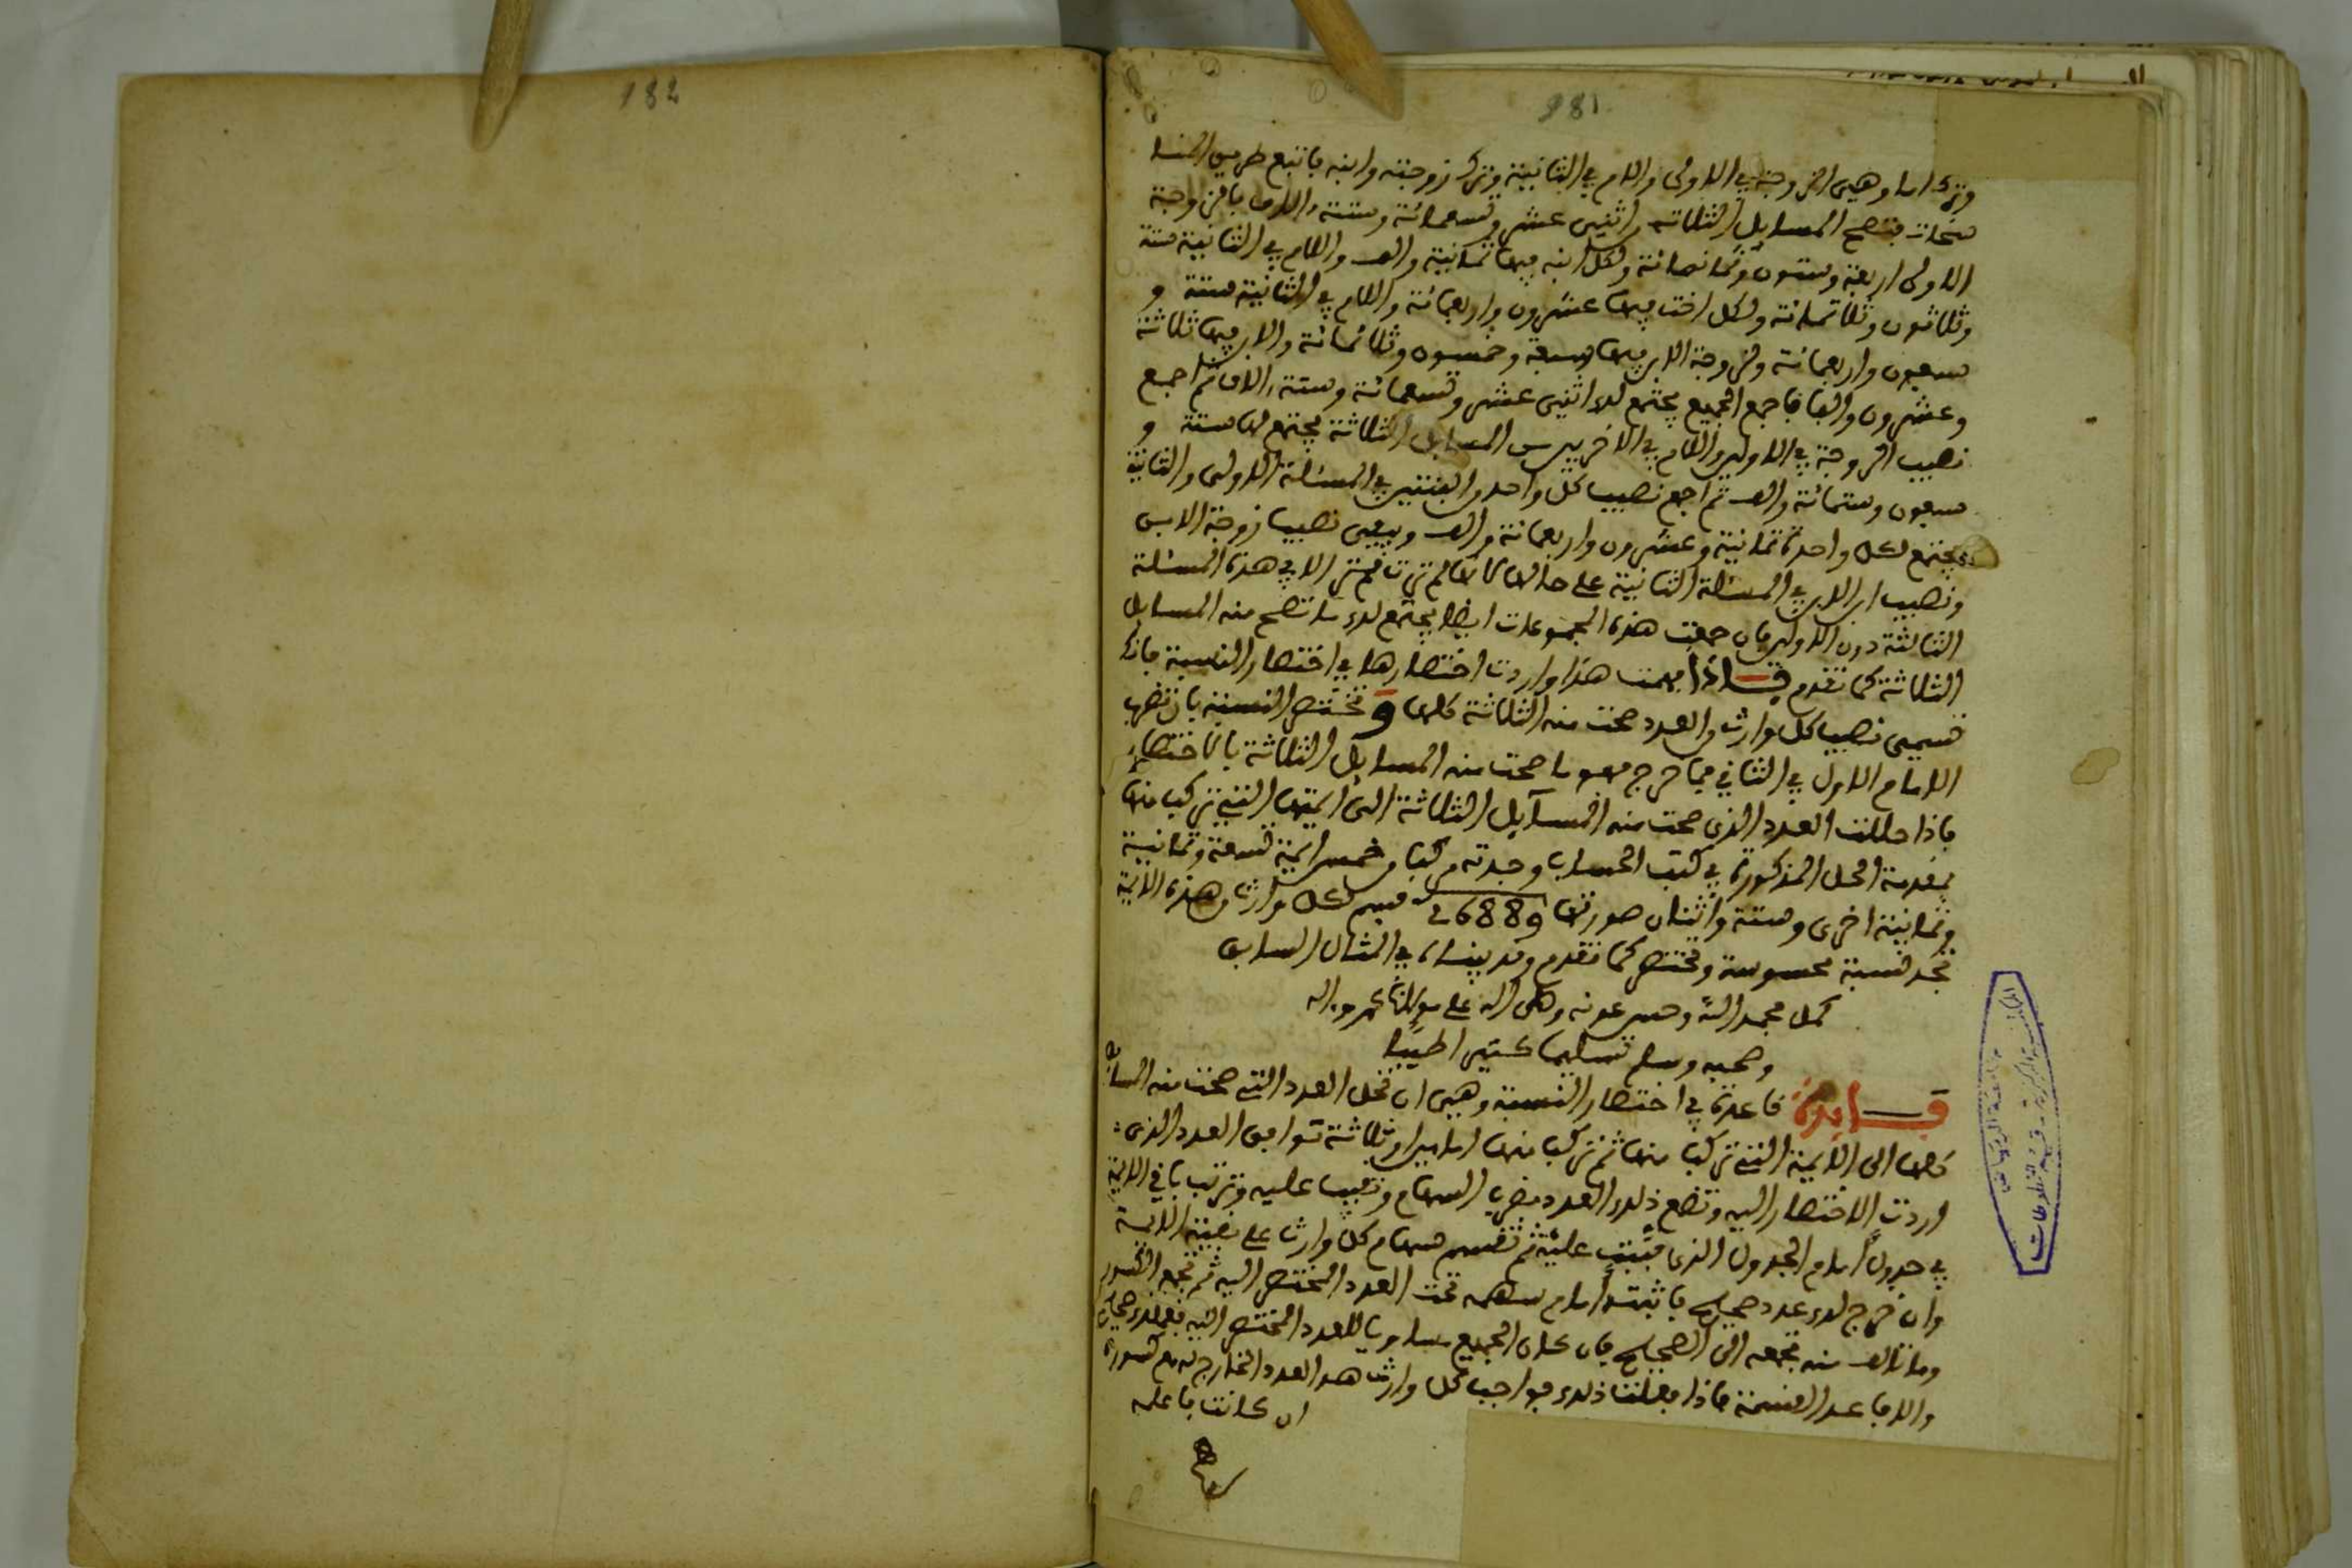 181
وترك اما وهي الزوجة في الاولى والام في الثانية وترك زوجته وابنه فاتبع طريق المنا
سخات فتصح المسايل الثلاثة من اثنين عشر وتسعمائة وستة ءالاف بالزوجة
الاولى اربعة وستون وثمانمائة ولكل ابنه فيها ثمانية والف وللام في الثانية ستة
وثلاثون وثلاثمائة ولكل اخت فيها عشرون واربعمائة وللام في الثانية ستة و
سبعون واربعمائة ولزوجة الابن فيها سبعة وخمسون وثلاثمائة والابن فيها ثلاثة
وعشرون والفا فاجمع الجميع يجتمع لك اثنين عشر وتسعمائة وستة ءالاف ثم اجمع
نصيب الزوجة في الاولى والام في الاخريين من المسايل الثلاثة يجتمع لها ستة و
سبعون وستمائة والف ثم اجمع نصيب كل واحد والبنتين في المسئلة الاولى والثانية
يجتمع لكل واحدة ثمانية وعشرون واربعمائة والف ويبقى نصيب زوجة الابن
ونصيب ابن الابن في المسئلة الثانية على حالها لانها لم ترث فيهن الا في هذه المسئلة
الثالثة دون الاولين فان جمعت هذه المجموعات ايضا يجتمع لك ما تصح منه المسايل
الثلاثة كما تقدم فاذا فهمت هذا واردت اختصارها في اختصار النسبة فانك
تسمى نصيب كل وارث من العدد صحت منه الثلاثة كلها و تختصر النسبة بان تضرب
الامام الاول في الثاني فما خرج فهو ما صحت منه المسايل الثلاثة بالاختصار
فاذا حللت العدد الذي صحت منه المسايل الثلاثة الى ايمتها التي تركب منها
بمقدمة الحل المذكورة في كتب الحساب وجدته مركبا من خمس ايمة تسعة وثمانية
وثمانية اخرى وستة واثنان صورتها 26889 فسم لكل وارث من هذه الايمة
تجد نسبة محسوسة وتختصر كما تقدم وقد بيناه في المثال السابق
كمل بحمد الله وحسن عونه وصلى الله على مولانا محمد وءاله
وصحبه وسلم تسليما كثيرا طيبا
فايدة قاعدة في اختصار النسبة وهي ان تحل العدد التي صحت منه المسايل
كلها الى الايمة التي تركب منها ثم تركب منها امامين او ثلاثة توافق العدد الذي
اردت الاختصار اليه وتضع ذلك العدد مضرب السهام وتقبب عليه وترتب باقي الايمة
في جدول امام الجدول الذي قببت عليه ثم تقسم سهام كل وارث على بقية الايمة
وان خرج لك عدد صحيح فاثبته امام سهمه تحت العدد المختصر اليه ثم تجمع الكسور
وما تالف منه تجمعه الى الصحيح فان كان الجميع مساويا للعدد المختصر اليه فعملك صحيح
والا فاعد القسمة فاذا فعلت ذلك فواجب كل وارث هو العدد الخارج له مع كسوره
ان كانت فاعلمه
182